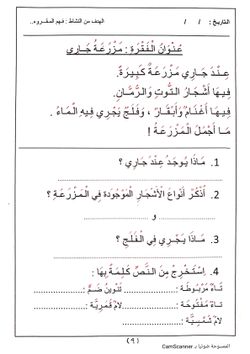 التاريخ : / / الهدف من النشاط : فهم المقروء..
عِنْوَانُ الْفَقْرَةِ : مَزْرَعَةُ جَارِي
عِنْدَ جَارِي مَزْرَعَةٌ كَبِيرَةٌ.
فِيهَا أَشْجَارُ التُّوتِ وَالرُّمَّانِ.
فِيهَا أَغْنَامٌ وَأَبْقَارٌ، وَفَلَجٌ يَجْرِي فِيهِ الْمَاءُ.
مَا أَجْمَلَ الْمَزْرَعَةَ !
1. مَاذَا يُوجَدُ عِنْدَ جَارِي ؟
2. أَذْكُرُ أَنْوَاعَ الْأَشْجَارِ الْمَوْجُودَةِ فِي الْمَزْرَعَةِ ؟
و
3. مَاذَا يَجْرِي فِي الْفَلَجِ ؟
4. اِسْتَخْرِجْ مِنَ النَّصِّ كَلِمَةً بِهَا :
تَاءٌ مَرْبُوطَةٌ : تَنْوِينُ ضَمٍّ :
تَاءٌ مَفْتُوحَةٌ : لَامٌ قَمَرِيَّةٌ :
لَامٌ شَمْسِيَّةٌ :
(٩)
الممسوحة ضوئيا بـ CamScanner